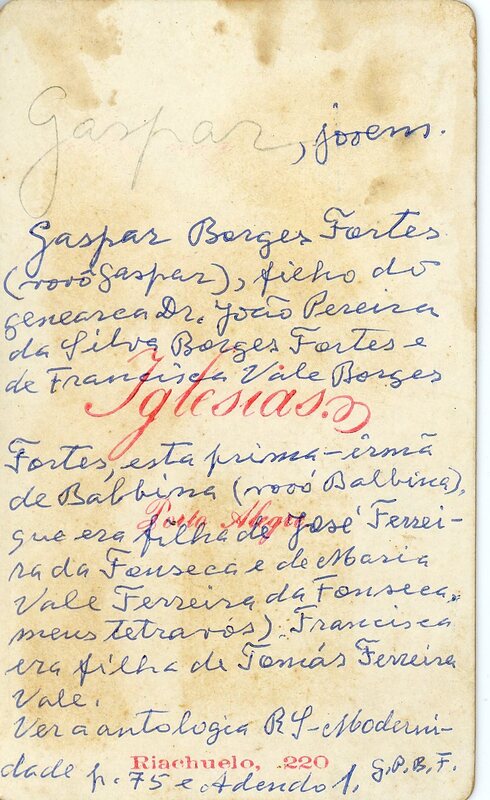 Gaspar, jovem.
Gaspar Borges Fortes
(vovô Gaspar), filho do
genearca Dr. João Pereira
da Silva Borges Fortes e
de Francisca Vale Borges
Iglesias.
Fortes, esta prima-irmã
de Balbina (vovó Balbina),
Porto Alegre
que era filha de José Ferrei-
ra da Fonseca e de Maria
Vale Ferreira da Fonseca,
meus tetravós). Francisca
era filha de Tomás Ferreira
Vale.
Ver a antologia RS-Moderni-
Riachuelo, 220
dade p. 75 e Adendo 1. G.P.B.F.